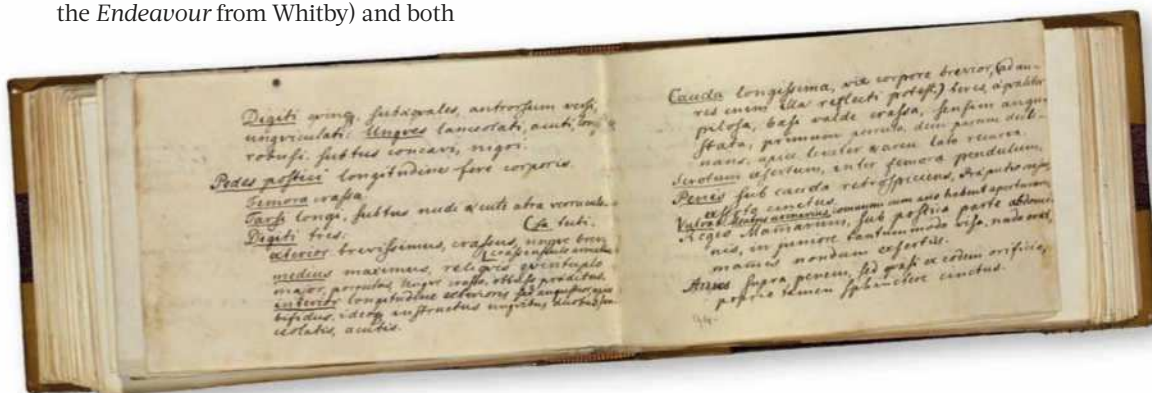 the Endeavour from Whitby) and both
Digiti quinq, subæquales, antrorsum versi,
unguiculati: Ungues lanceolati, acuti, longi
robusti. subtus concavi, nigri.
Pedes postici longitudine fere corporis.
Femora crassa.
Tarsi longi, subtus nudi & cute atra
tuti.
Digiti tres:
exterior brevissimus, crassus, ungue brevi
medius maximus, reliquis
major, ungue crasso, præditus.
interior longitudine exterioris sed angustior,
bifidus, ideoq instructus unguibus duobus,
acutis.
Cauda longissima, vix corpore brevior, (ad au-
res enim illa reflecti potest,) teres,
pilosa, basi valde crassa, sensim angu
stata, primum dein parum decli-
nans, apice leviter
Scrotum exsertum, inter femora pendulum,
Penis sub cauda retrospiciens, Præputio
cinctus.
Vulva communem cum ano habent aperturam,
Regio Mammarum, sub postica parte abdomi-
nis, in juniore tantummodo visa, nuda
mamis nondum exsertis.
Anus supra penem, sed quasi ex eodem orificio,
proprio tamen sphinctere cinctus.
94.